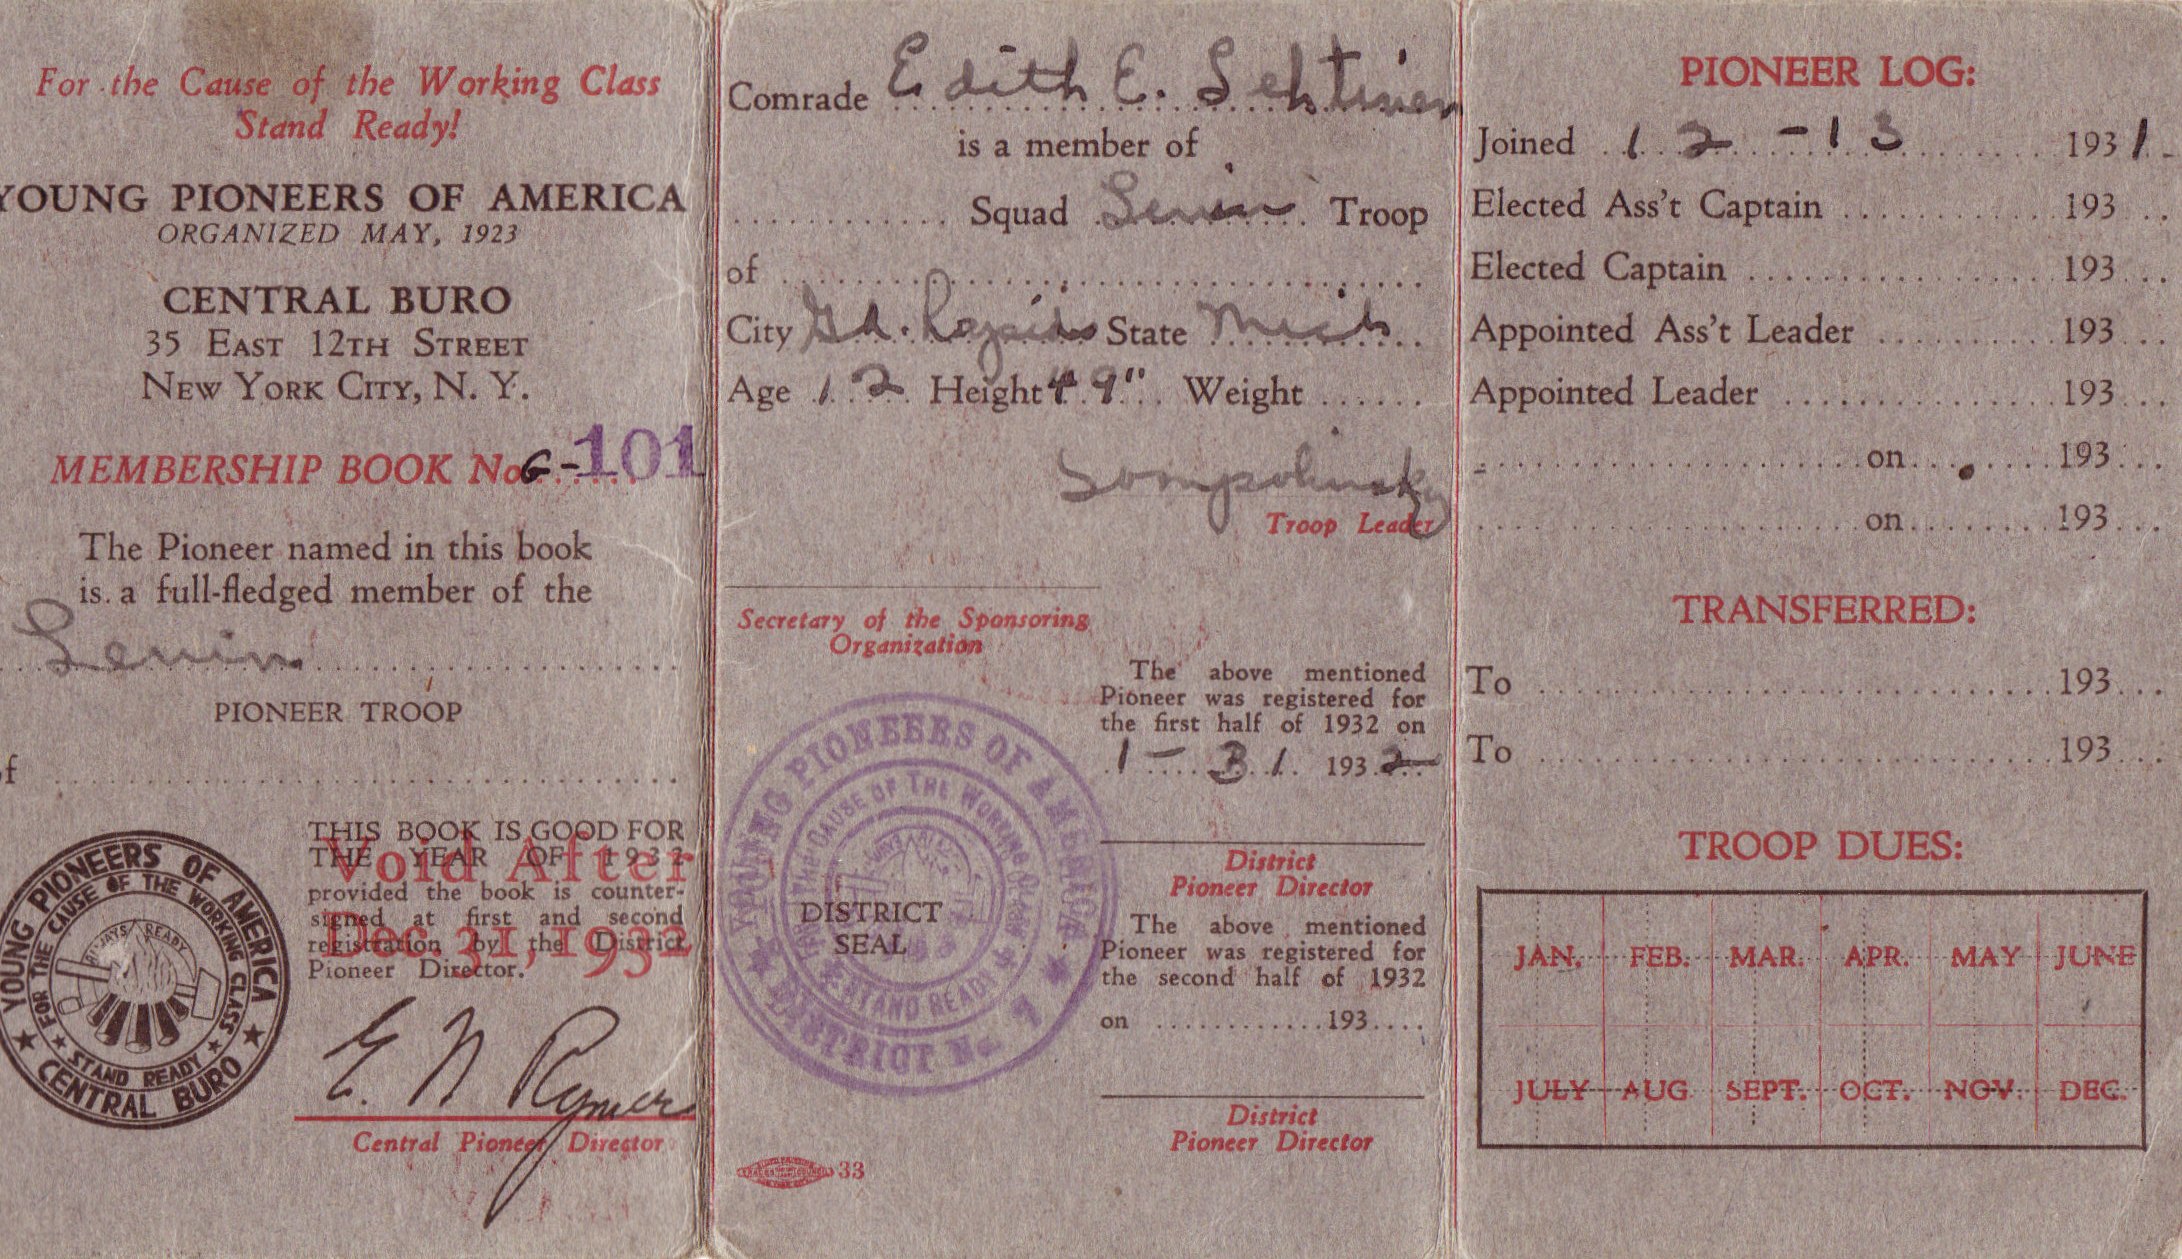 For the Cause of the Working Class
Stand Ready!
YOUNG PIONEERS OF AMERICA
ORGANIZED MAY, 1923
CENTRAL BURO
35 EAST 12TH STREET
NEW YORK CITY, N. Y.
MEMBERSHIP BOOK No. G-101
The Pioneer named in this book
is a full-fledged member of the
Lenin
PIONEER TROOP
of
THIS BOOK IS GOOD FOR
THE YEAR OF 1932
provided the book is counter-
signed at first and second
registration by the District
Pioneer Director.
Void After
Dec. 31, 1932
YOUNG PIONEERS OF AMERICA
FOR THE CAUSE OF THE WORKING CLASS
ALWAYS READY
STAND READY
CENTRAL BURO
E. N. Rymer
Central Pioneer Director
Comrade Edith E. Lehtinen
is a member of
Squad Lenin Troop
of
City Gd. Rapids State Mich
Age 12 Height 4 9" Weight
Sompolinsky
Troop Leader
Secretary of the Sponsoring
Organization
The above mentioned
Pioneer was registered for
the first half of 1932 on
1-31 1932
District
Pioneer Director
The above mentioned
Pioneer was registered for
the second half of 1932
on 193
District
Pioneer Director
YOUNG PIONEERS OF AMERICA
FOR THE CAUSE OF THE WORKING CLASS
STAND READY
DISTRICT No. 7
DISTRICT
SEAL
33
PIONEER LOG:
Joined 12-13 1931
Elected Ass't Captain 193
Elected Captain 193
Appointed Ass't Leader 193
Appointed Leader 193
on 193
on 193
TRANSFERRED:
To 193
To 193
TROOP DUES:
JAN. FEB. MAR. APR. MAY JUNE
JULY AUG. SEPT. OCT. NOV. DEC.